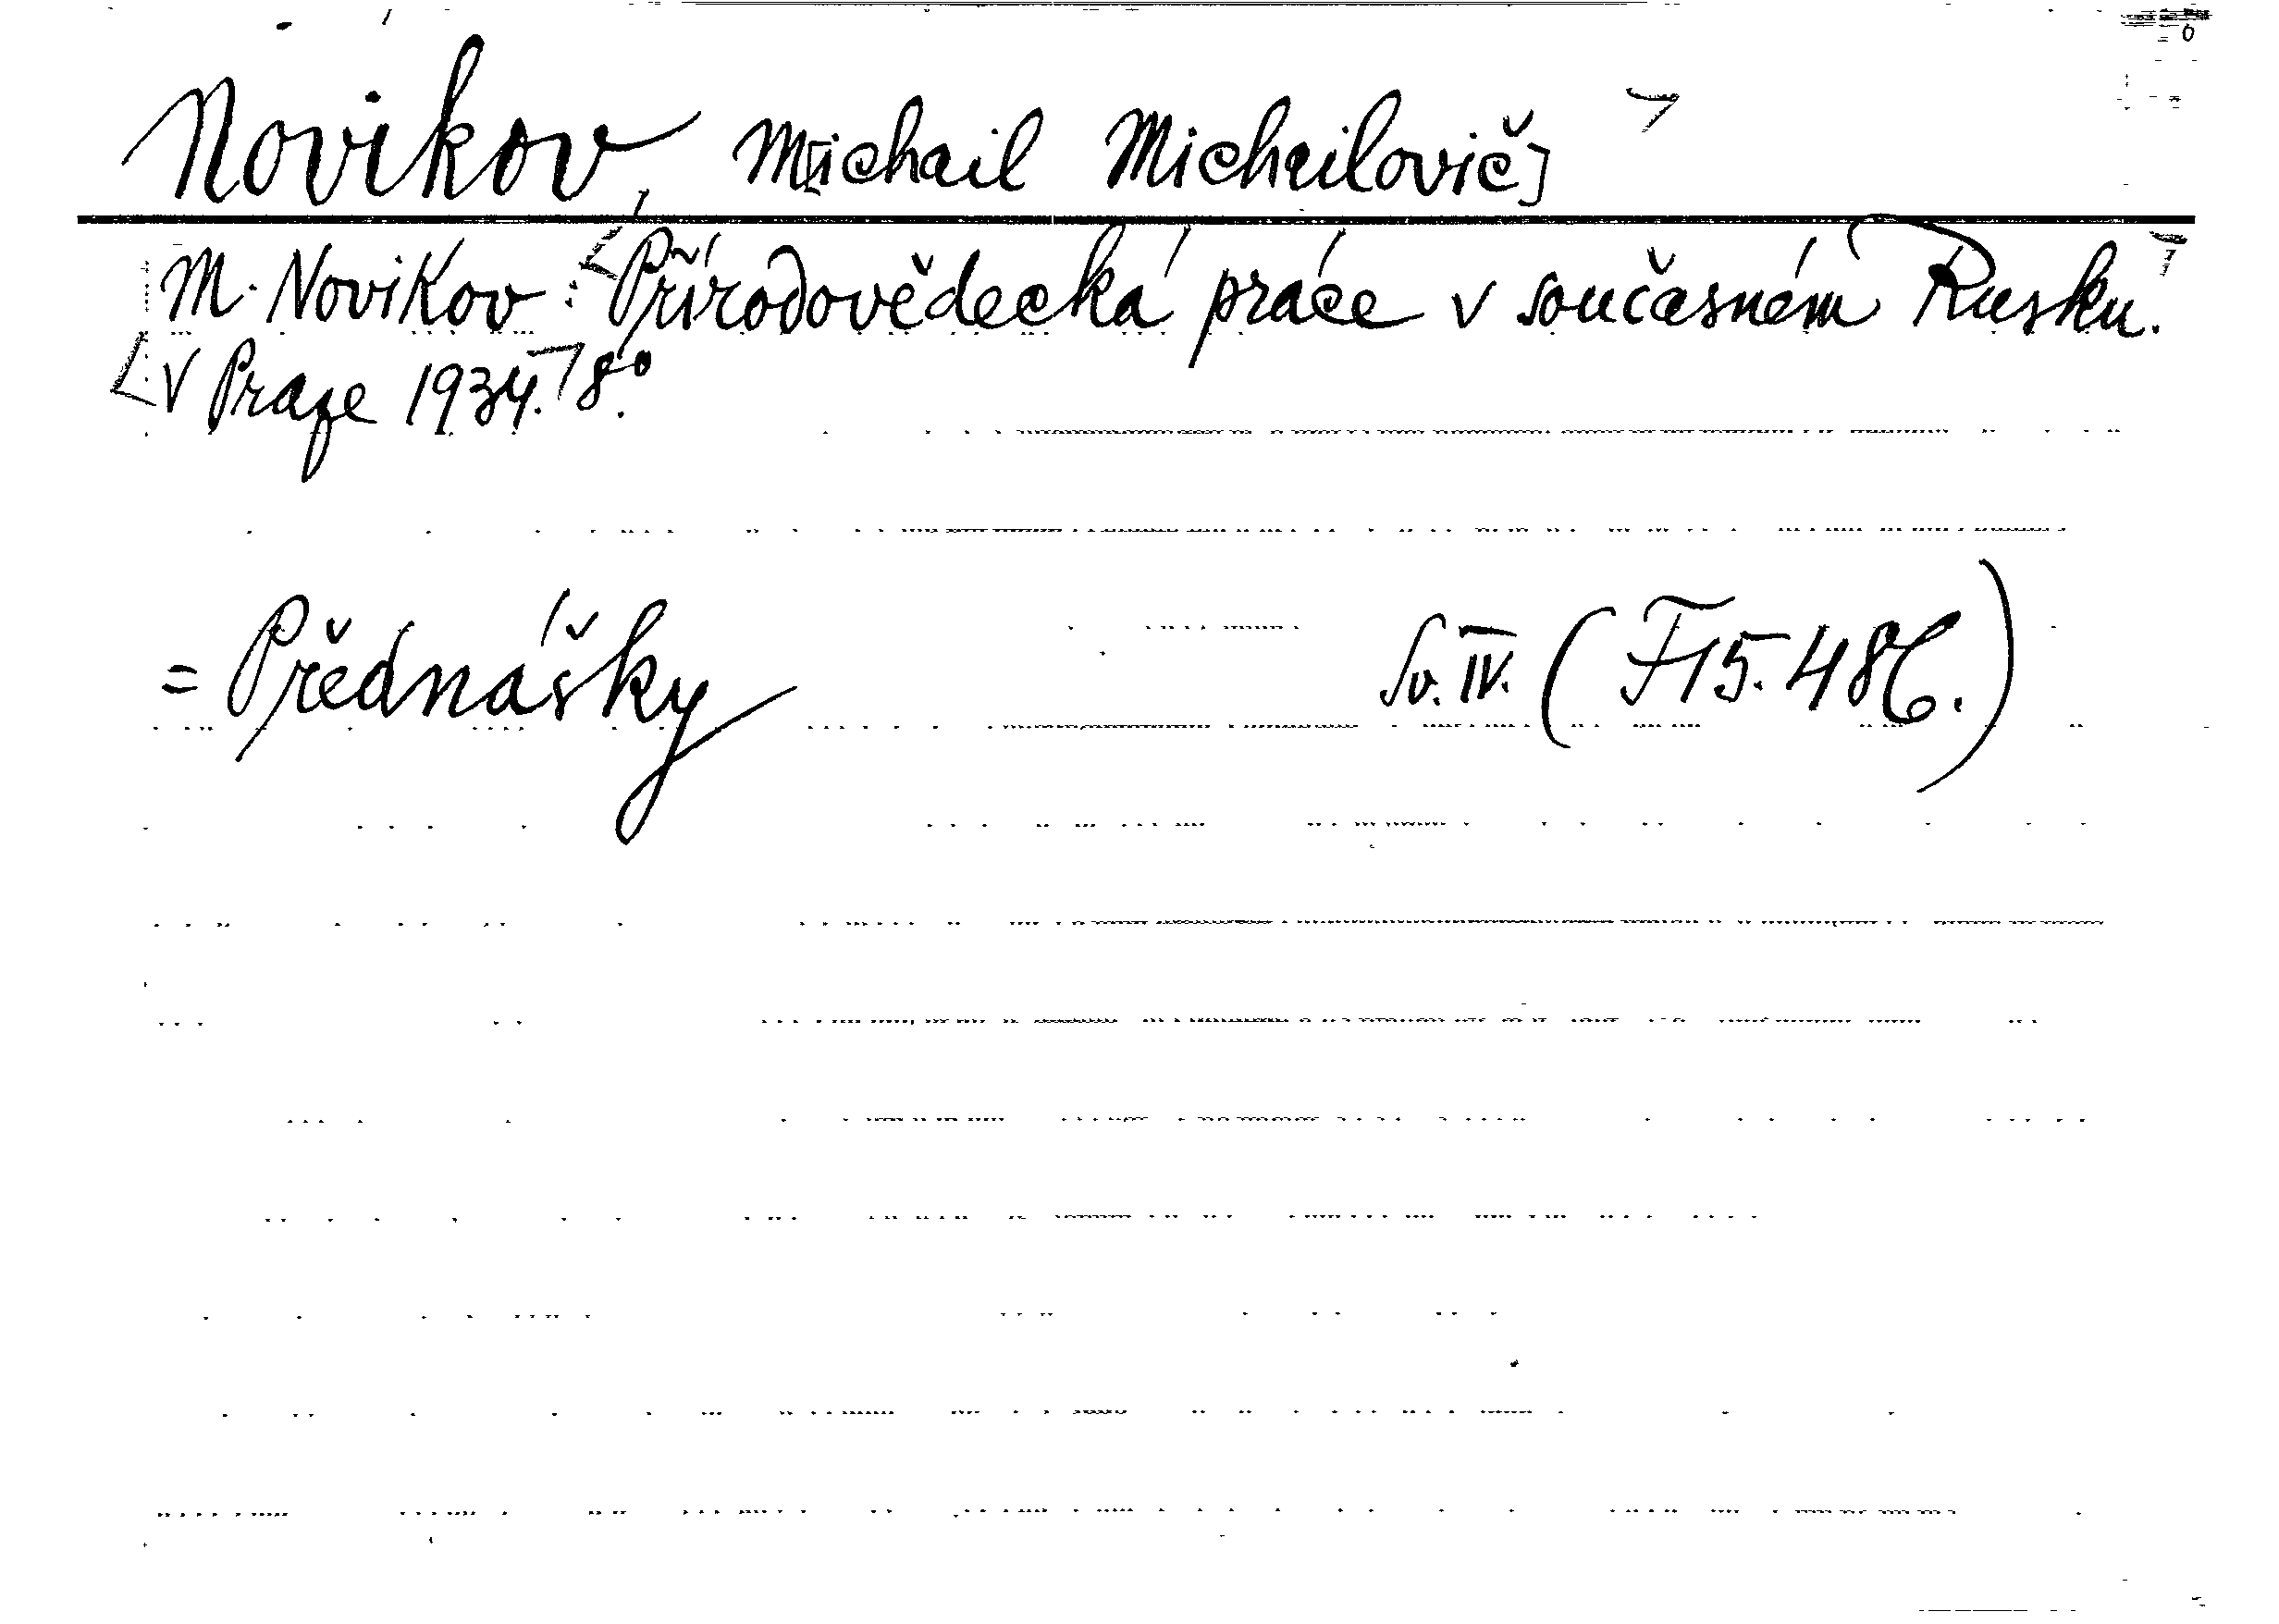 Novikov, M[ichail Michailovič]
M. Novikov: Přírodovědecká práce v současném Rusku.
V Praze 1934. 8°.
= Přednášky Sv. IV. (F 15.486.)